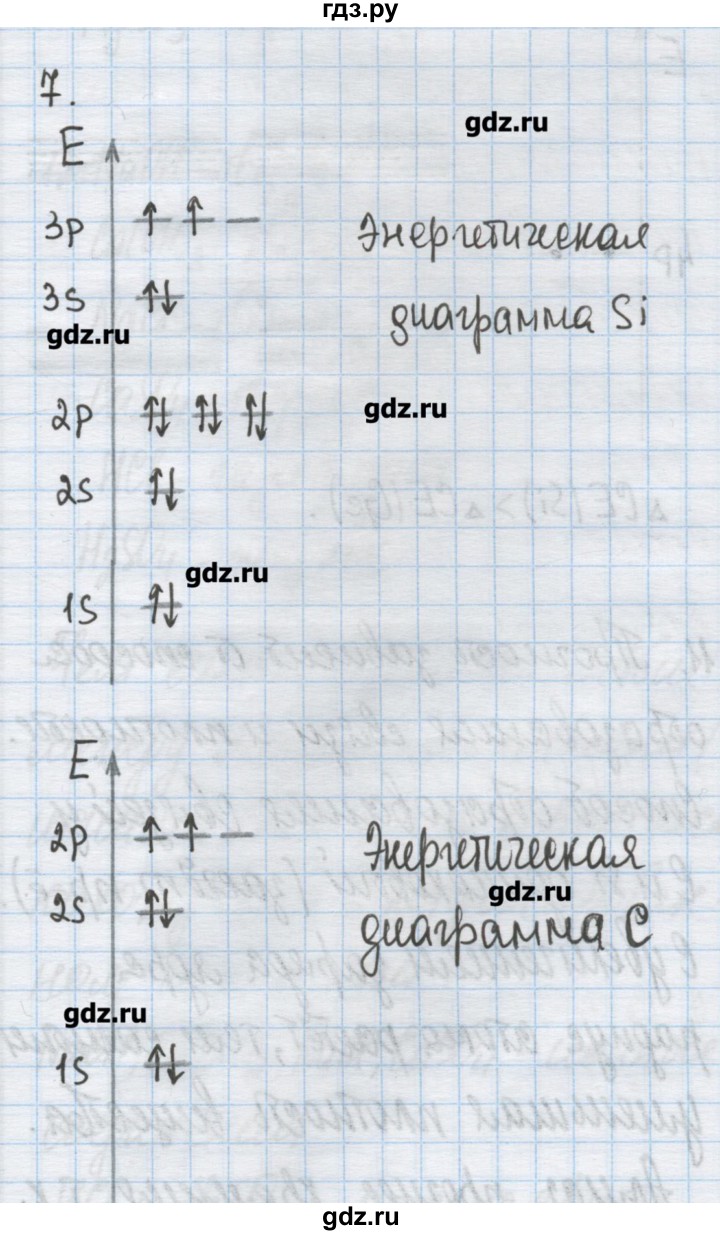 гдз.ру
7.
gdz.ru
E
3p
Энергетическая
3s
диаграмма Si
gdz.ru
2p
gdz.ru
2s
gdz.ru
1s
E
2p
Энергетическая
gdz.ru
2s
диаграмма C
gdz.ru
1s
gdz.ru